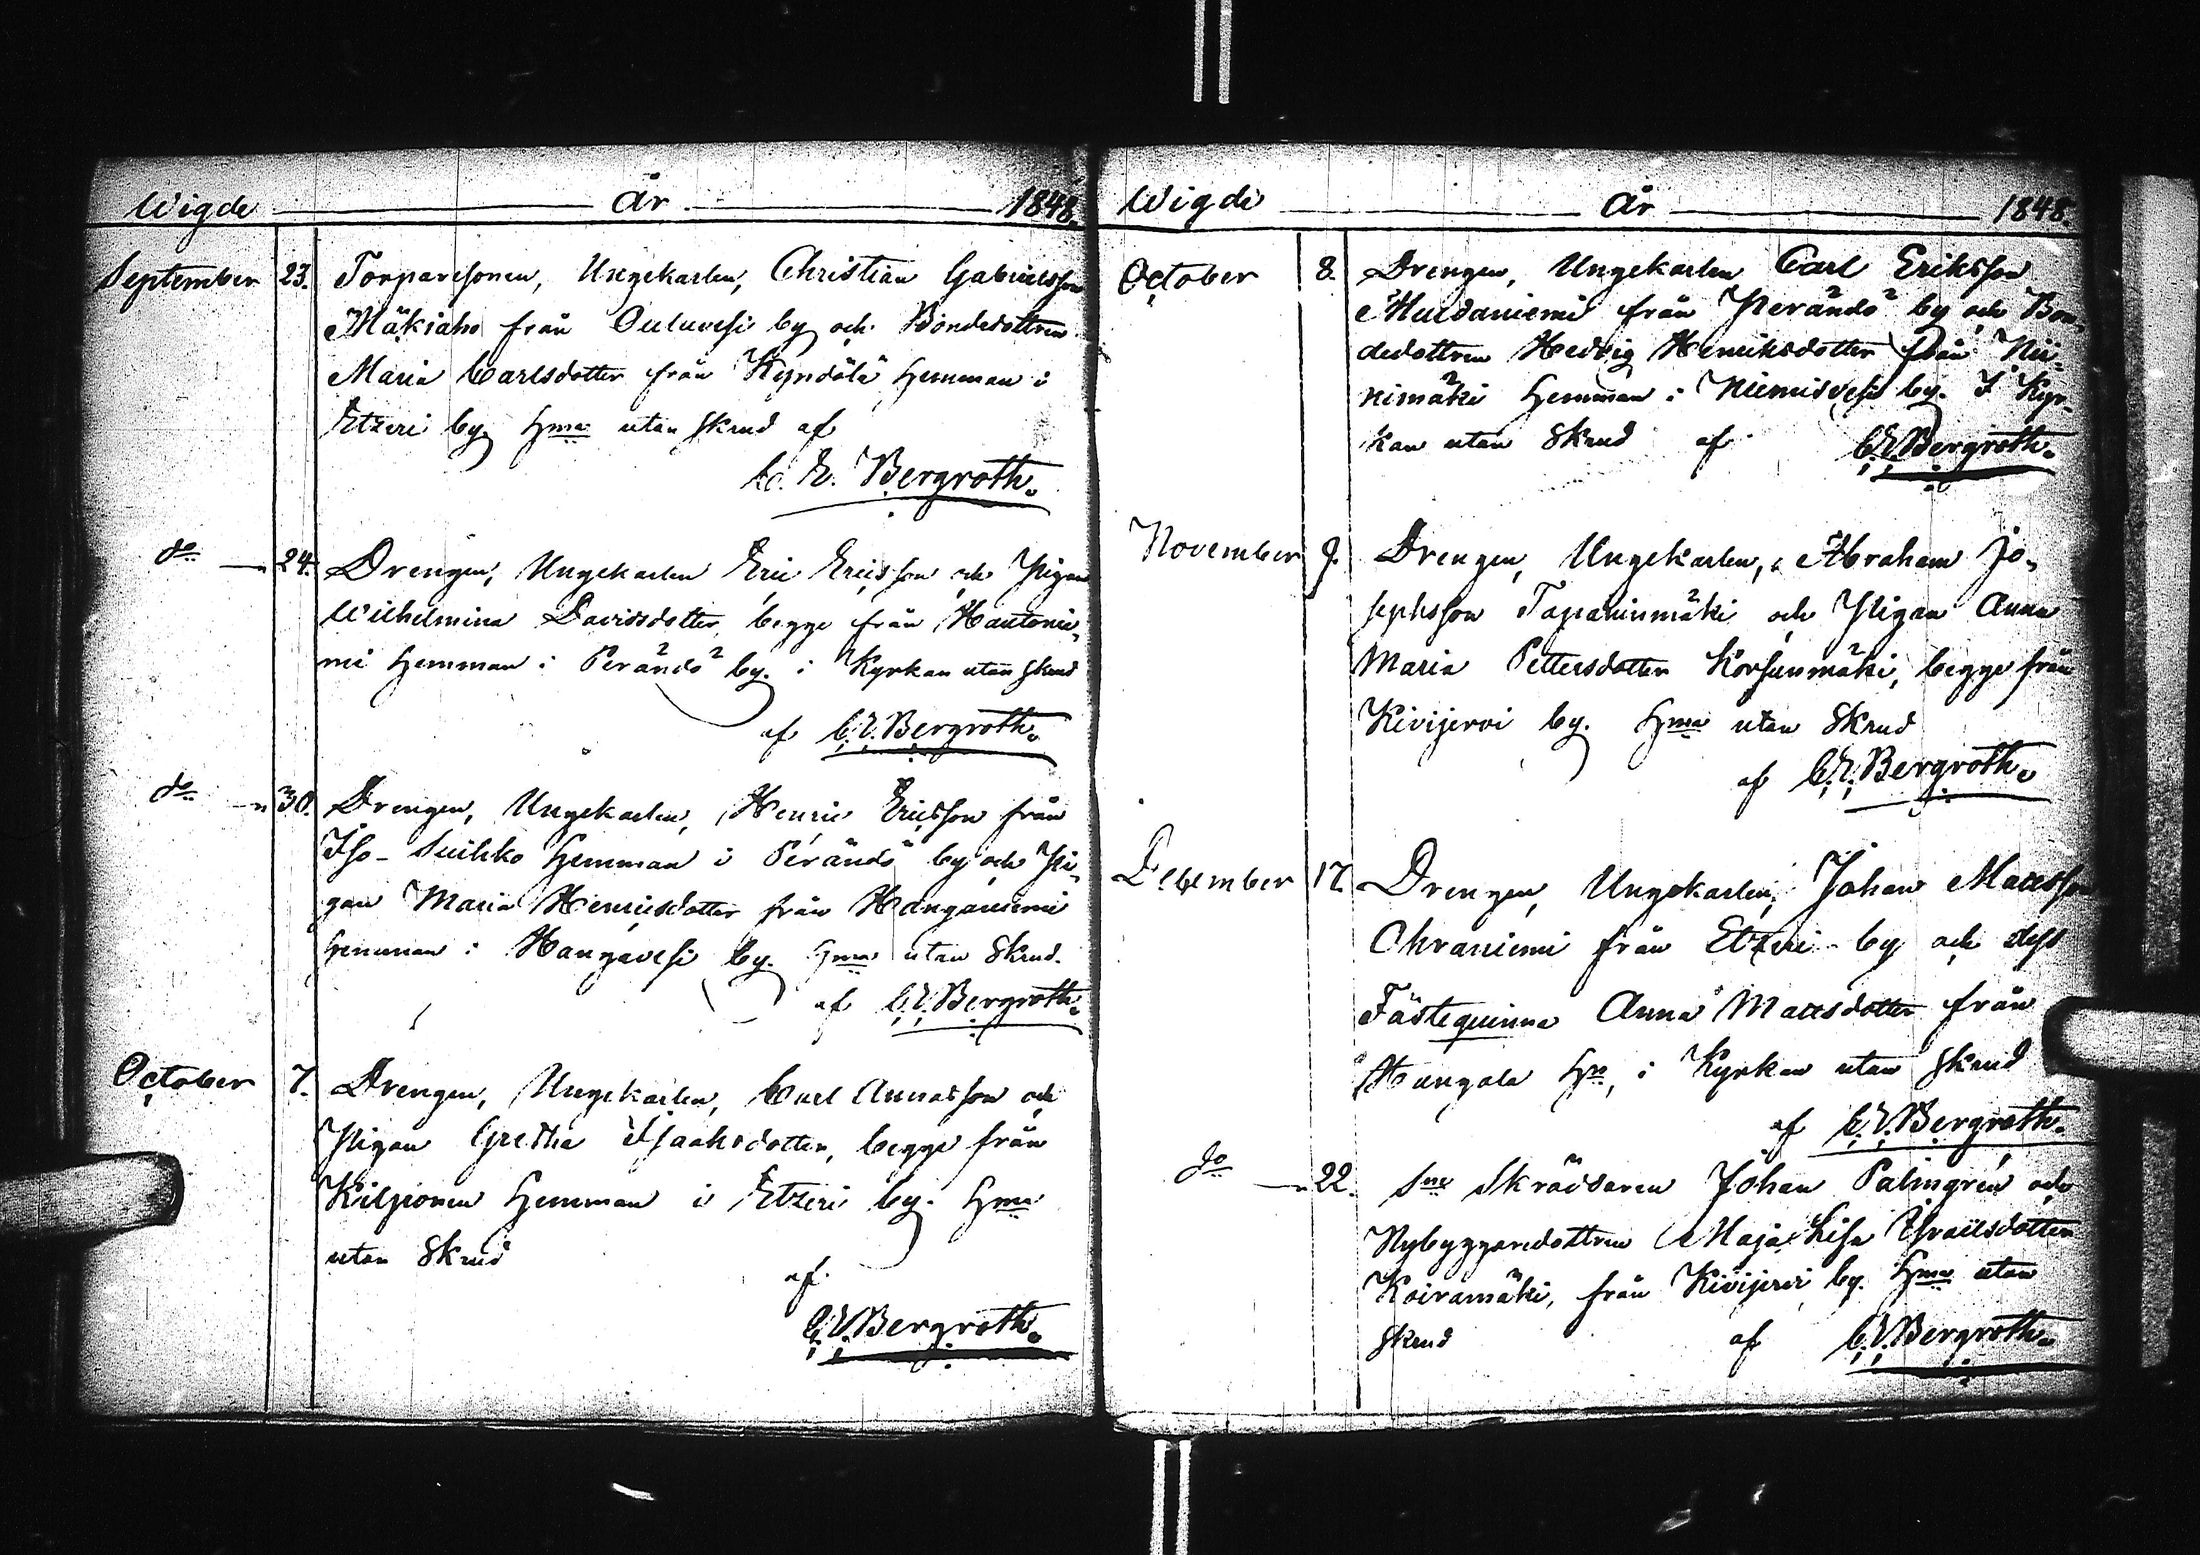 Wigde År 1848.
September 23. Torparesonen, Ungekarlen, Christian Gabrielsson
Mäkiaho från Ouluvesi by och Bondedottren
Maria Carlsdotter från Kyndölä Hemman i
Etzeri by. Hma utan skrud af
C. E. Bergroth.
do " 24. Drengen, Ungekarlen Eric Ericsson och Pigan
Wilhelmina Davidsdotter, begge från Hautonie-
mi Hemman i Perändö by. i Kyrkan utan skrud
af C. E. Bergroth.
do " 30. Drengen, Ungekarlen, Henric Ericsson från
Iso-Suihko Hemman i Perändö by och Pi-
gan Maria Henricsdotter från Hanganiemi
Hemman i Hangavesi by. Hma utan skrud.
af C. E. Bergroth.
October 7. Drengen, Ungekarlen, Carl Annasson och
Pigan Gretha Isaaksdotter, begge från
Kilpionen Hemman i Etzeri by. Hma
utan skrud
af
C. E. Bergroth.
Wigde År 1848.
October 8. Drengen, Ungekarlen Carl Eriksson
från Perändö by och Bon-
dedottren Hedvig Henriksdotter från Nii-
nimäki Hemman i Niemisvesi by. I Kyr-
kan utan skrud af C. E. Bergroth.
November 9. Drengen, Ungekarlen, Abraham Jo-
sephsson Tapaninmäki och Pigan Anna
Maria Pettersdotter Korsunmäki, begge från
Kivijervi by. Hma utan skrud
af C. E. Bergroth.
December 17. Drengen, Ungekarlen, Johan Mattsson
Ohraniemi från Etzeri by och dess
Fästequinna Anna Mattsdotter från
Hangala Hn, i Kyrkan utan skrud
af C. E. Bergroth.
do " 22. Sne Skräddaren Johan Palmgrén och
Nybyggaredottren Maja Lisa Israelsdotter
Koiramäki, från Kivijervi by. Hma utan
skrud af C. E. Bergroth.